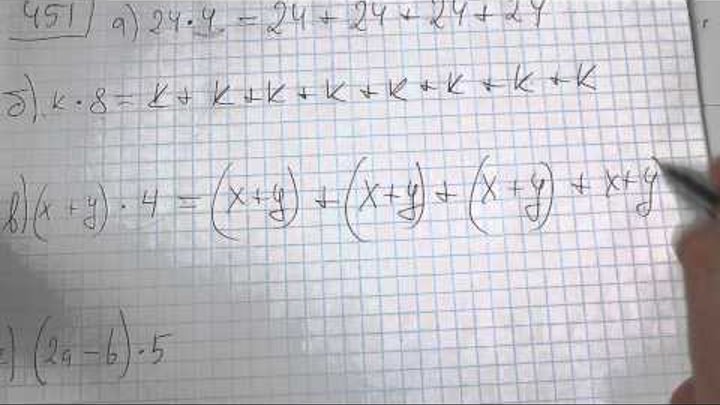 451 а) 24·4 = 24 + 24 + 24 + 24
б) k·8 = k + k + k + k + k + k + k + k
в) (x + y) · 4 = (x+y) + (x+y) + (x+y) + x+y
) (2a − b)·5